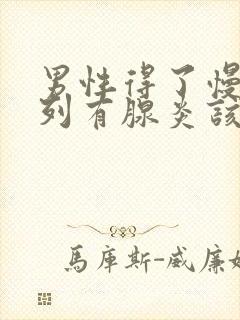 男性得了慢
列有腺炎该
馬庫斯-威廉